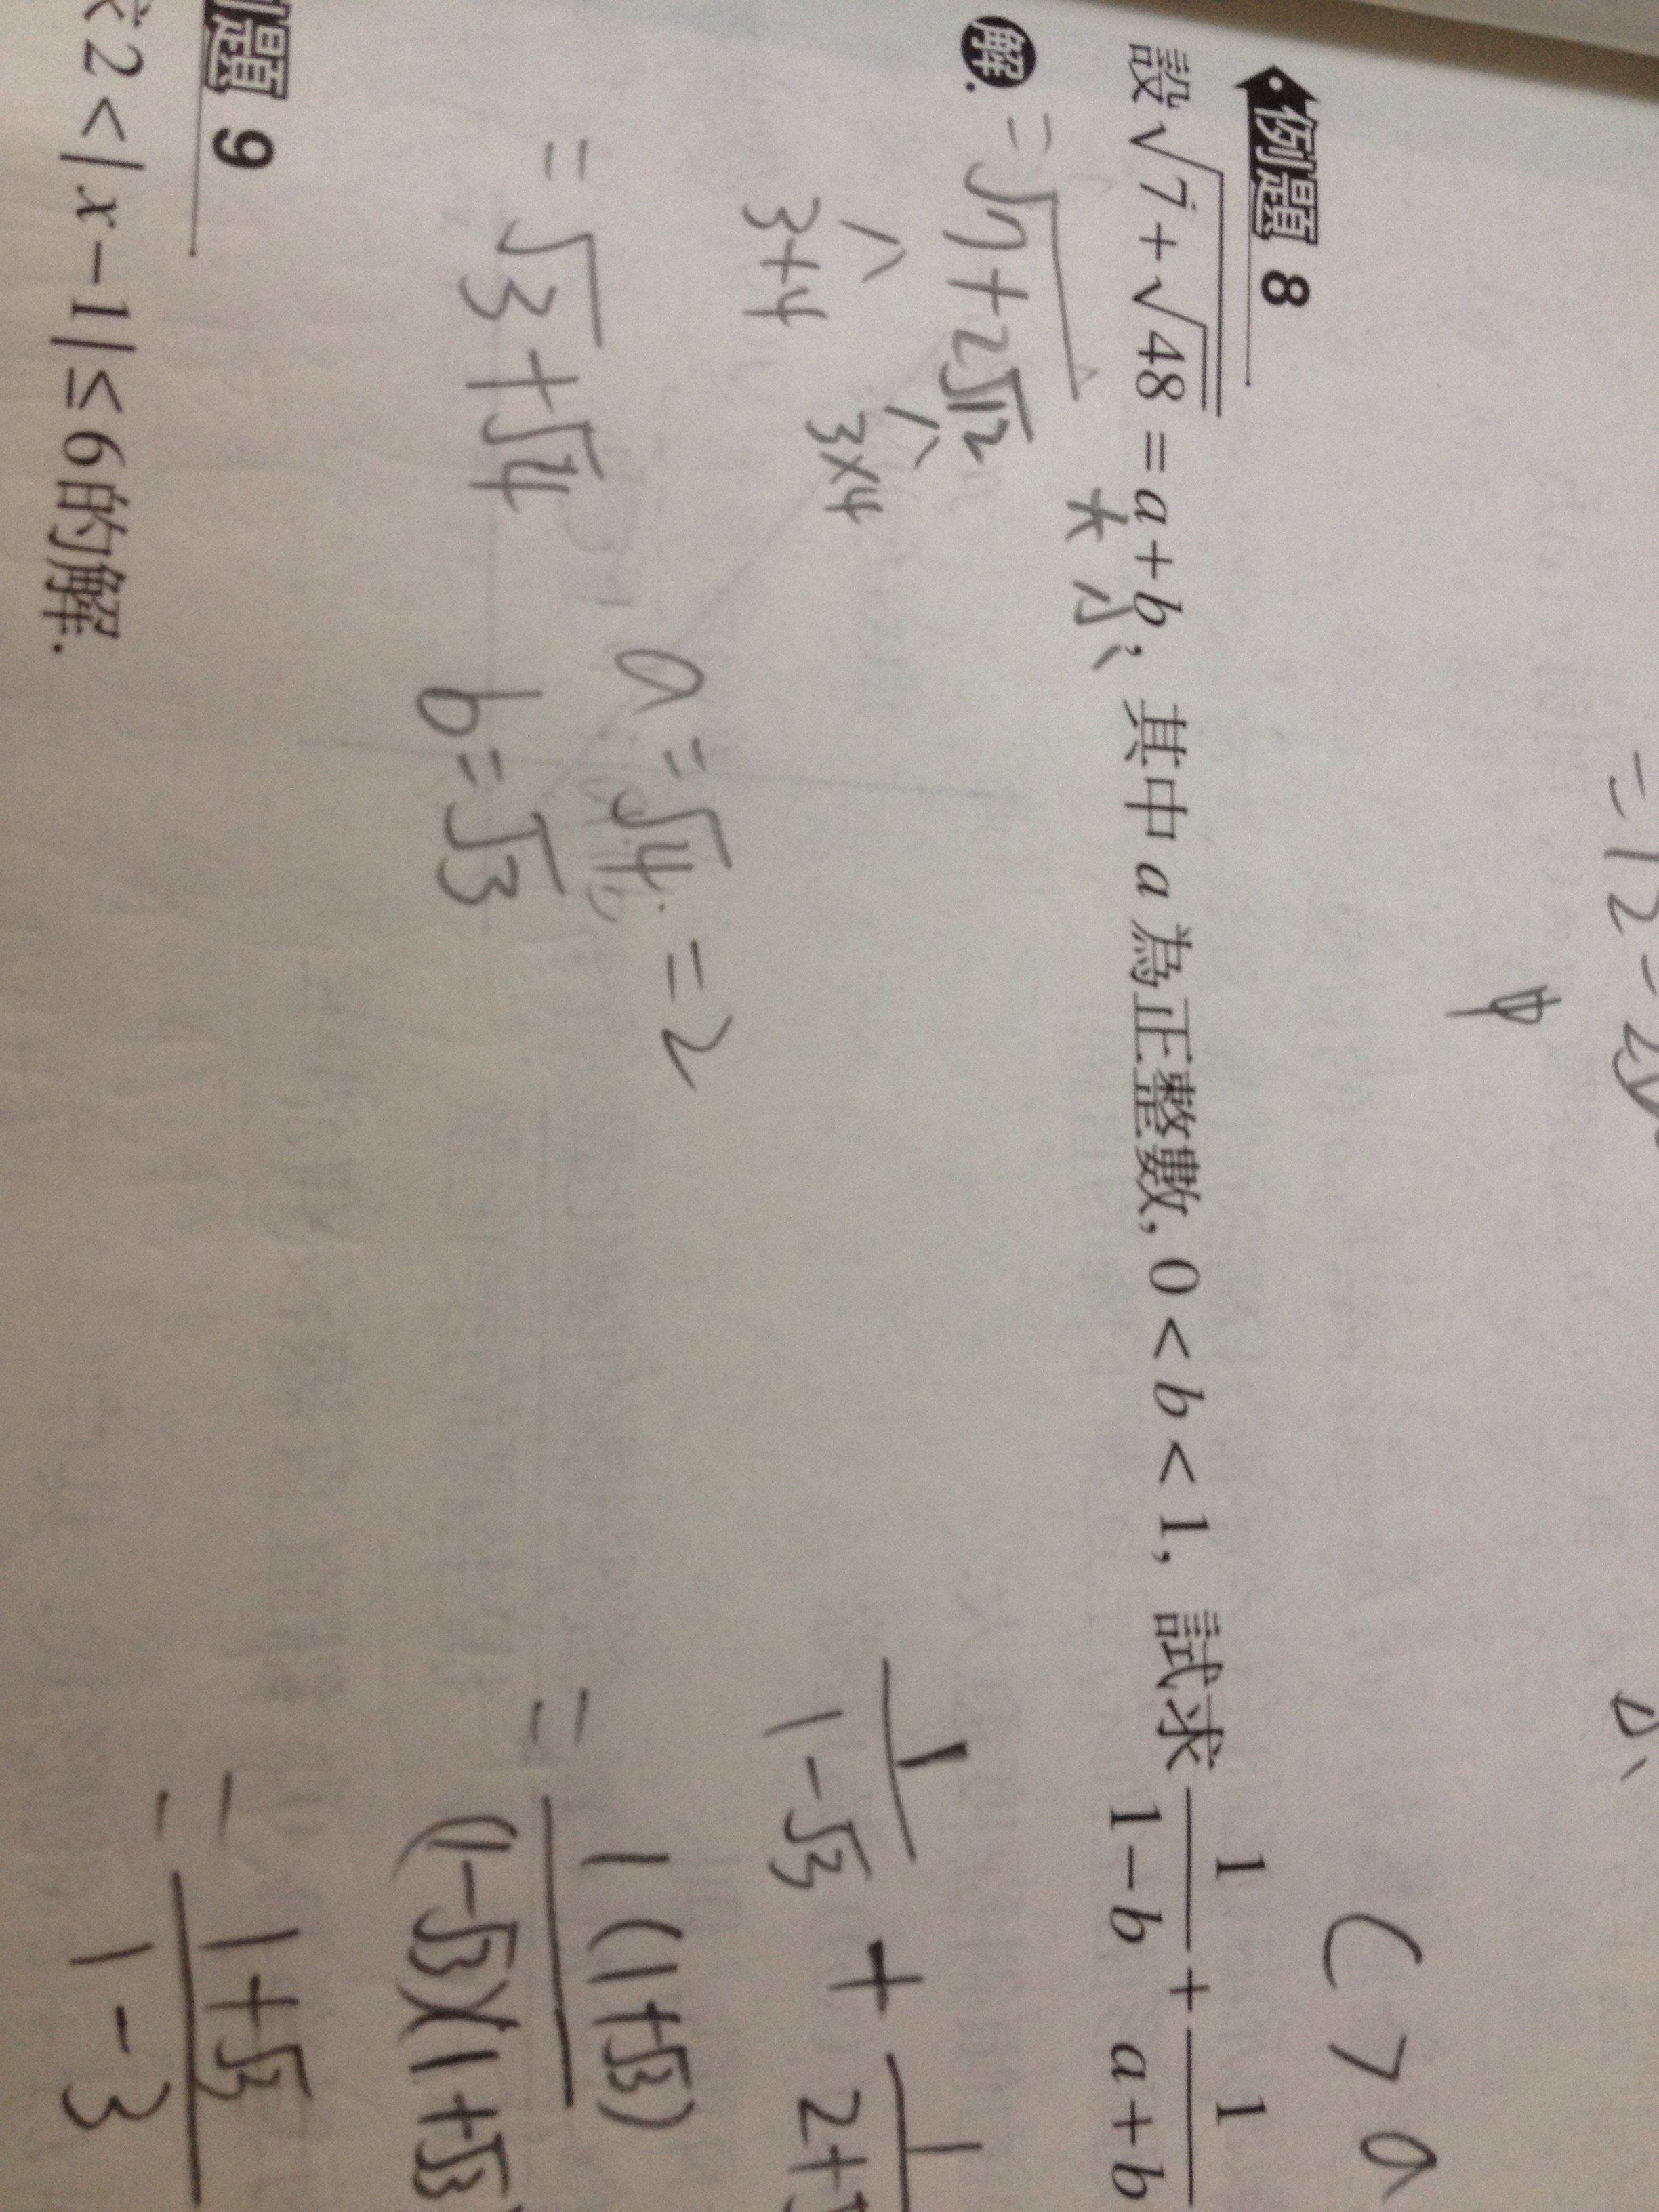 = 12 - 2
小
( > a
例題 8
設√(7+√48) = a+b, 其中 a 為正整數, 0 < b < 1, 試求 1/(1−b) + 1/(a+b)
大 小
解. = √(7+2√12)
3+4 3×4
= √3+√4
a = √4 = 2
b = √3
1/(1-√3) + 1/(2+
= 1(1+√3)/(1-√3)(1+√3)
= 1+√3/1-3
題 9
求 2 < |x−1| ≤ 6 的解.